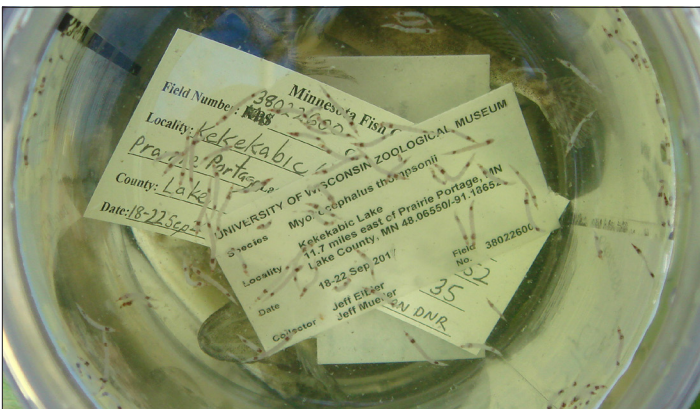 Minnesota Fish
Field Number: 38022600
Locality: Kekekabic
Prairie Portage
County: Lake
Date: 18-22 Sep
UNIVERSITY OF WISCONSIN ZOOLOGICAL MUSEUM
Species Myoxocephalus thompsonii
Locality Kekekabic Lake
11.7 miles east of Prairie Portage, MN
Lake County, MN 48.06550/-91.18652
Date 18-22 Sep 201
Field No. 38022600
Collector Jeff
Jeff
52
35
DNR